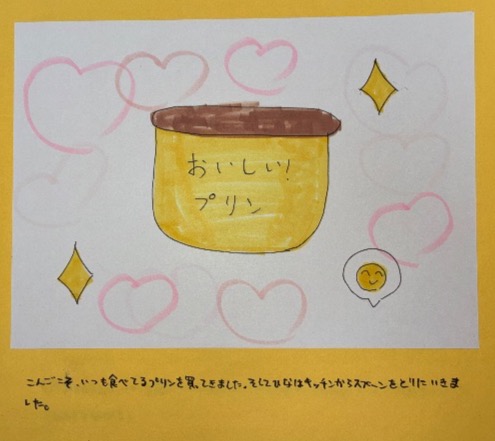 おいしい!
プリン
こんごこそ、いつも食べてるプリンを買ってきました。そしてひなはキッチンからスプーンをとりにいきま
した。